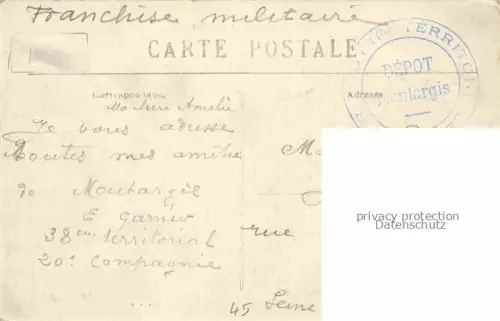 Franchise militaire
CARTE POSTALE
Correspondance
Adresse
DÉPOT
Montargis
Ma chère Amélie
Je vous adresse
toutes mes amitiés
de Montargis
E Garnier
38em territorial
20e Compagnie
...
rue
45 Seine
privacy protection
Datenschutz